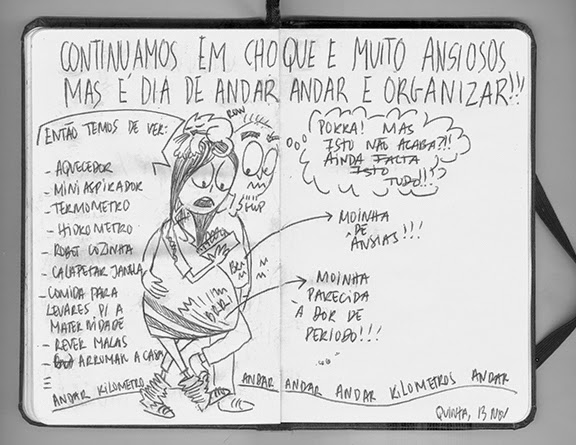 CONTINUAMOS EM CHOQUE E MUITO ANSIOSOS
MAS É DIA DE ANDAR ANDAR E ORGANIZAR!!
ENTÃO TEMOS DE VER:
- AQUECEDOR
- MINI ASPIRADOR
- TERMOMETRO
- HIDROMETRO
- ROBOT COZINHA
- CALAFETAR JANELA
- COMIDA PARA
LEVARES P/ A
MATERNIDADE
- REVER MALAS
- ARRUMAR A CASA
RON
GLUP
BRR
BRRR!
PORRA! MAS
ISTO NÃO ACABA?!!
AINDA FALTA
ISTO
TUDO!!!
MOINHA
DE
ÂNSIAS!!!
MOINHA
PARECIDA
À DOR DE
PERIODO!!!
ANDAR KILOMETRO ANDAR ANDAR ANDAR KILOMETROS ANDAR
QUINTA, 13 NOV